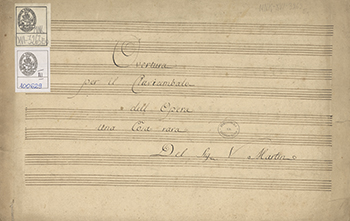 Overtura
per il Clavicembalo
dell Opera
una Cosa rara
Del Sig V Martin
100629